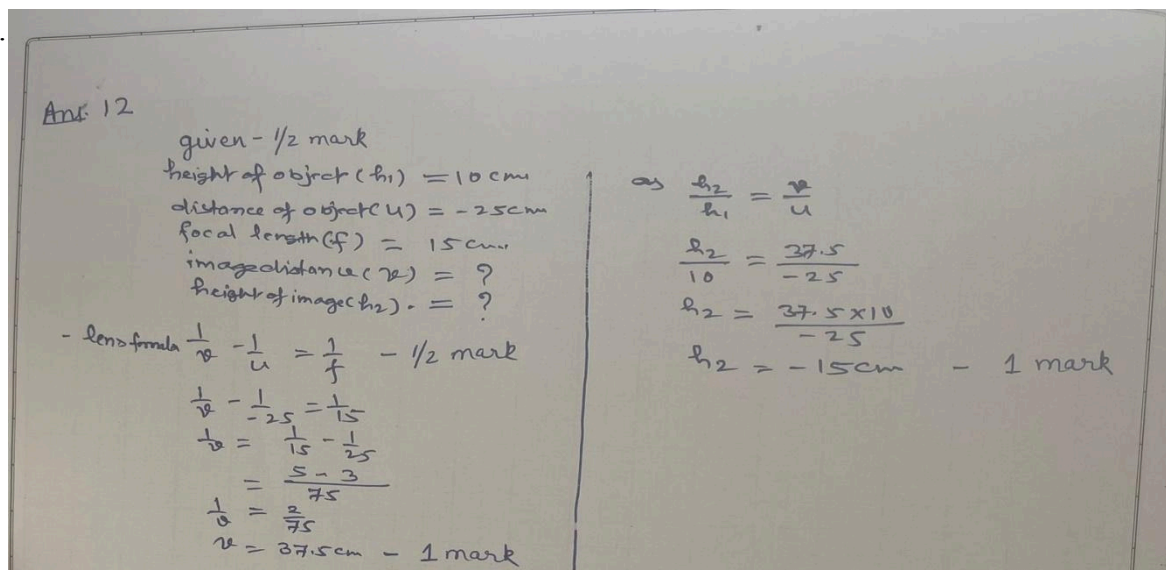 Ans. 12
given - 1/2 mark
height of object (h1) = 10 cm
distance of object (u) = -25cm
focal length (f) = 15 cm
image distance (v) = ?
height of image (h2). = ?
- lens formula 1/v - 1/u = 1/f - 1/2 mark
1/v - 1/-25 = 1/15
1/v = 1/15 - 1/25
= 5 - 3/75
1/v = 2/75
v = 37.5 cm - 1 mark
as h2/h1 = v/u
h2/10 = 37.5/-25
h2 = 37.5 x 10/-25
h2 = - 15 cm - 1 mark